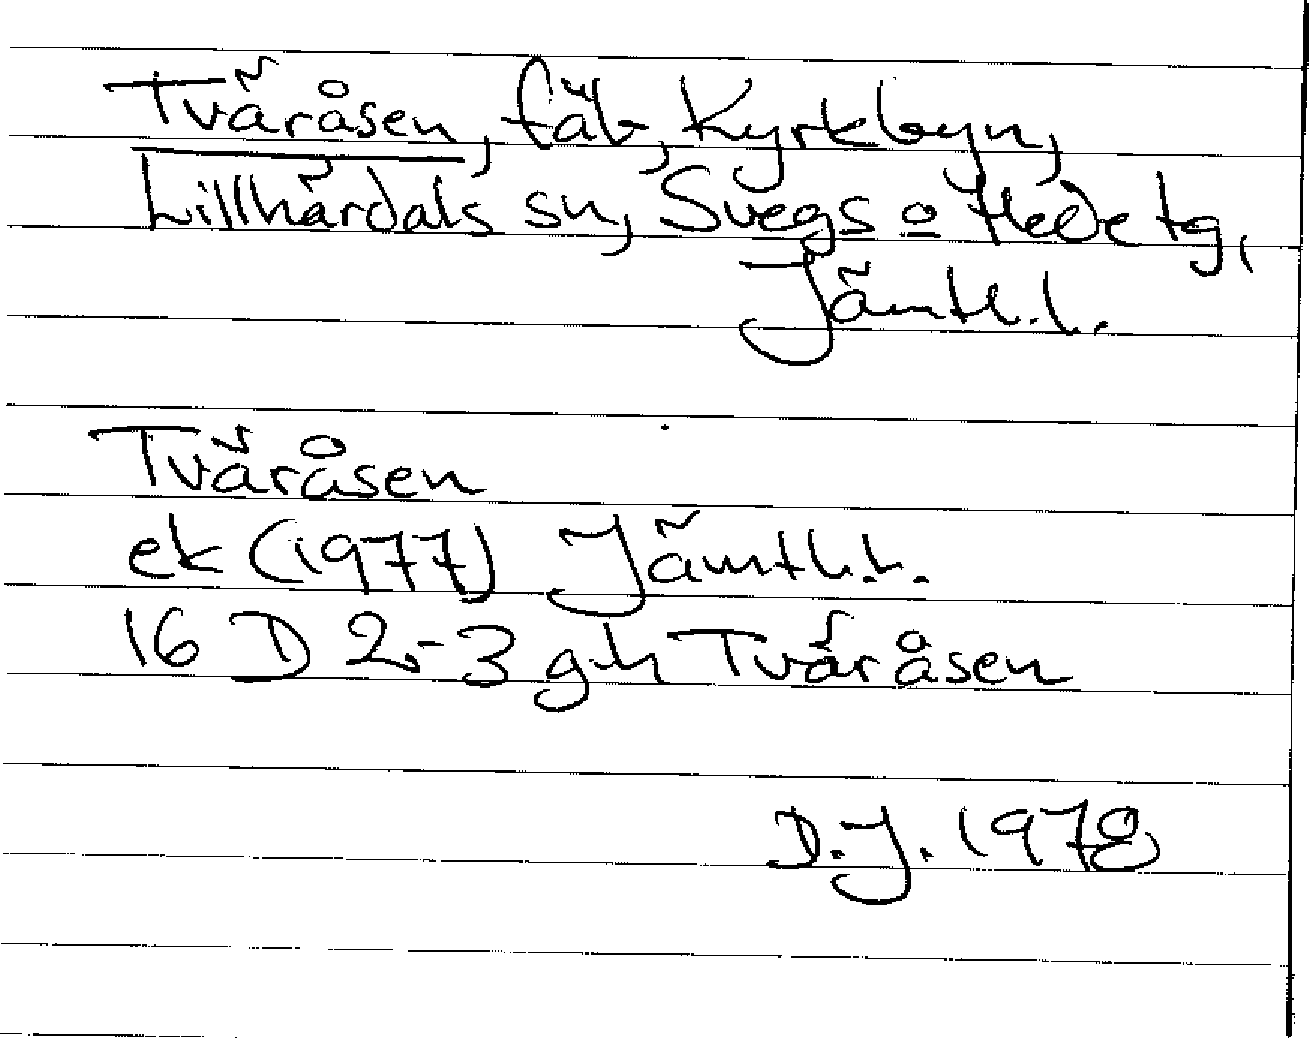 Tväråsen, fäb, Kyrkbyn,
Lillhärdals sn, Svegs o Hede tg,
Jämtl.l.
Tväråsen
ek (1977) Jämtl.l.
16 D 2-3 g-h Tväråsen
D.J. 1978